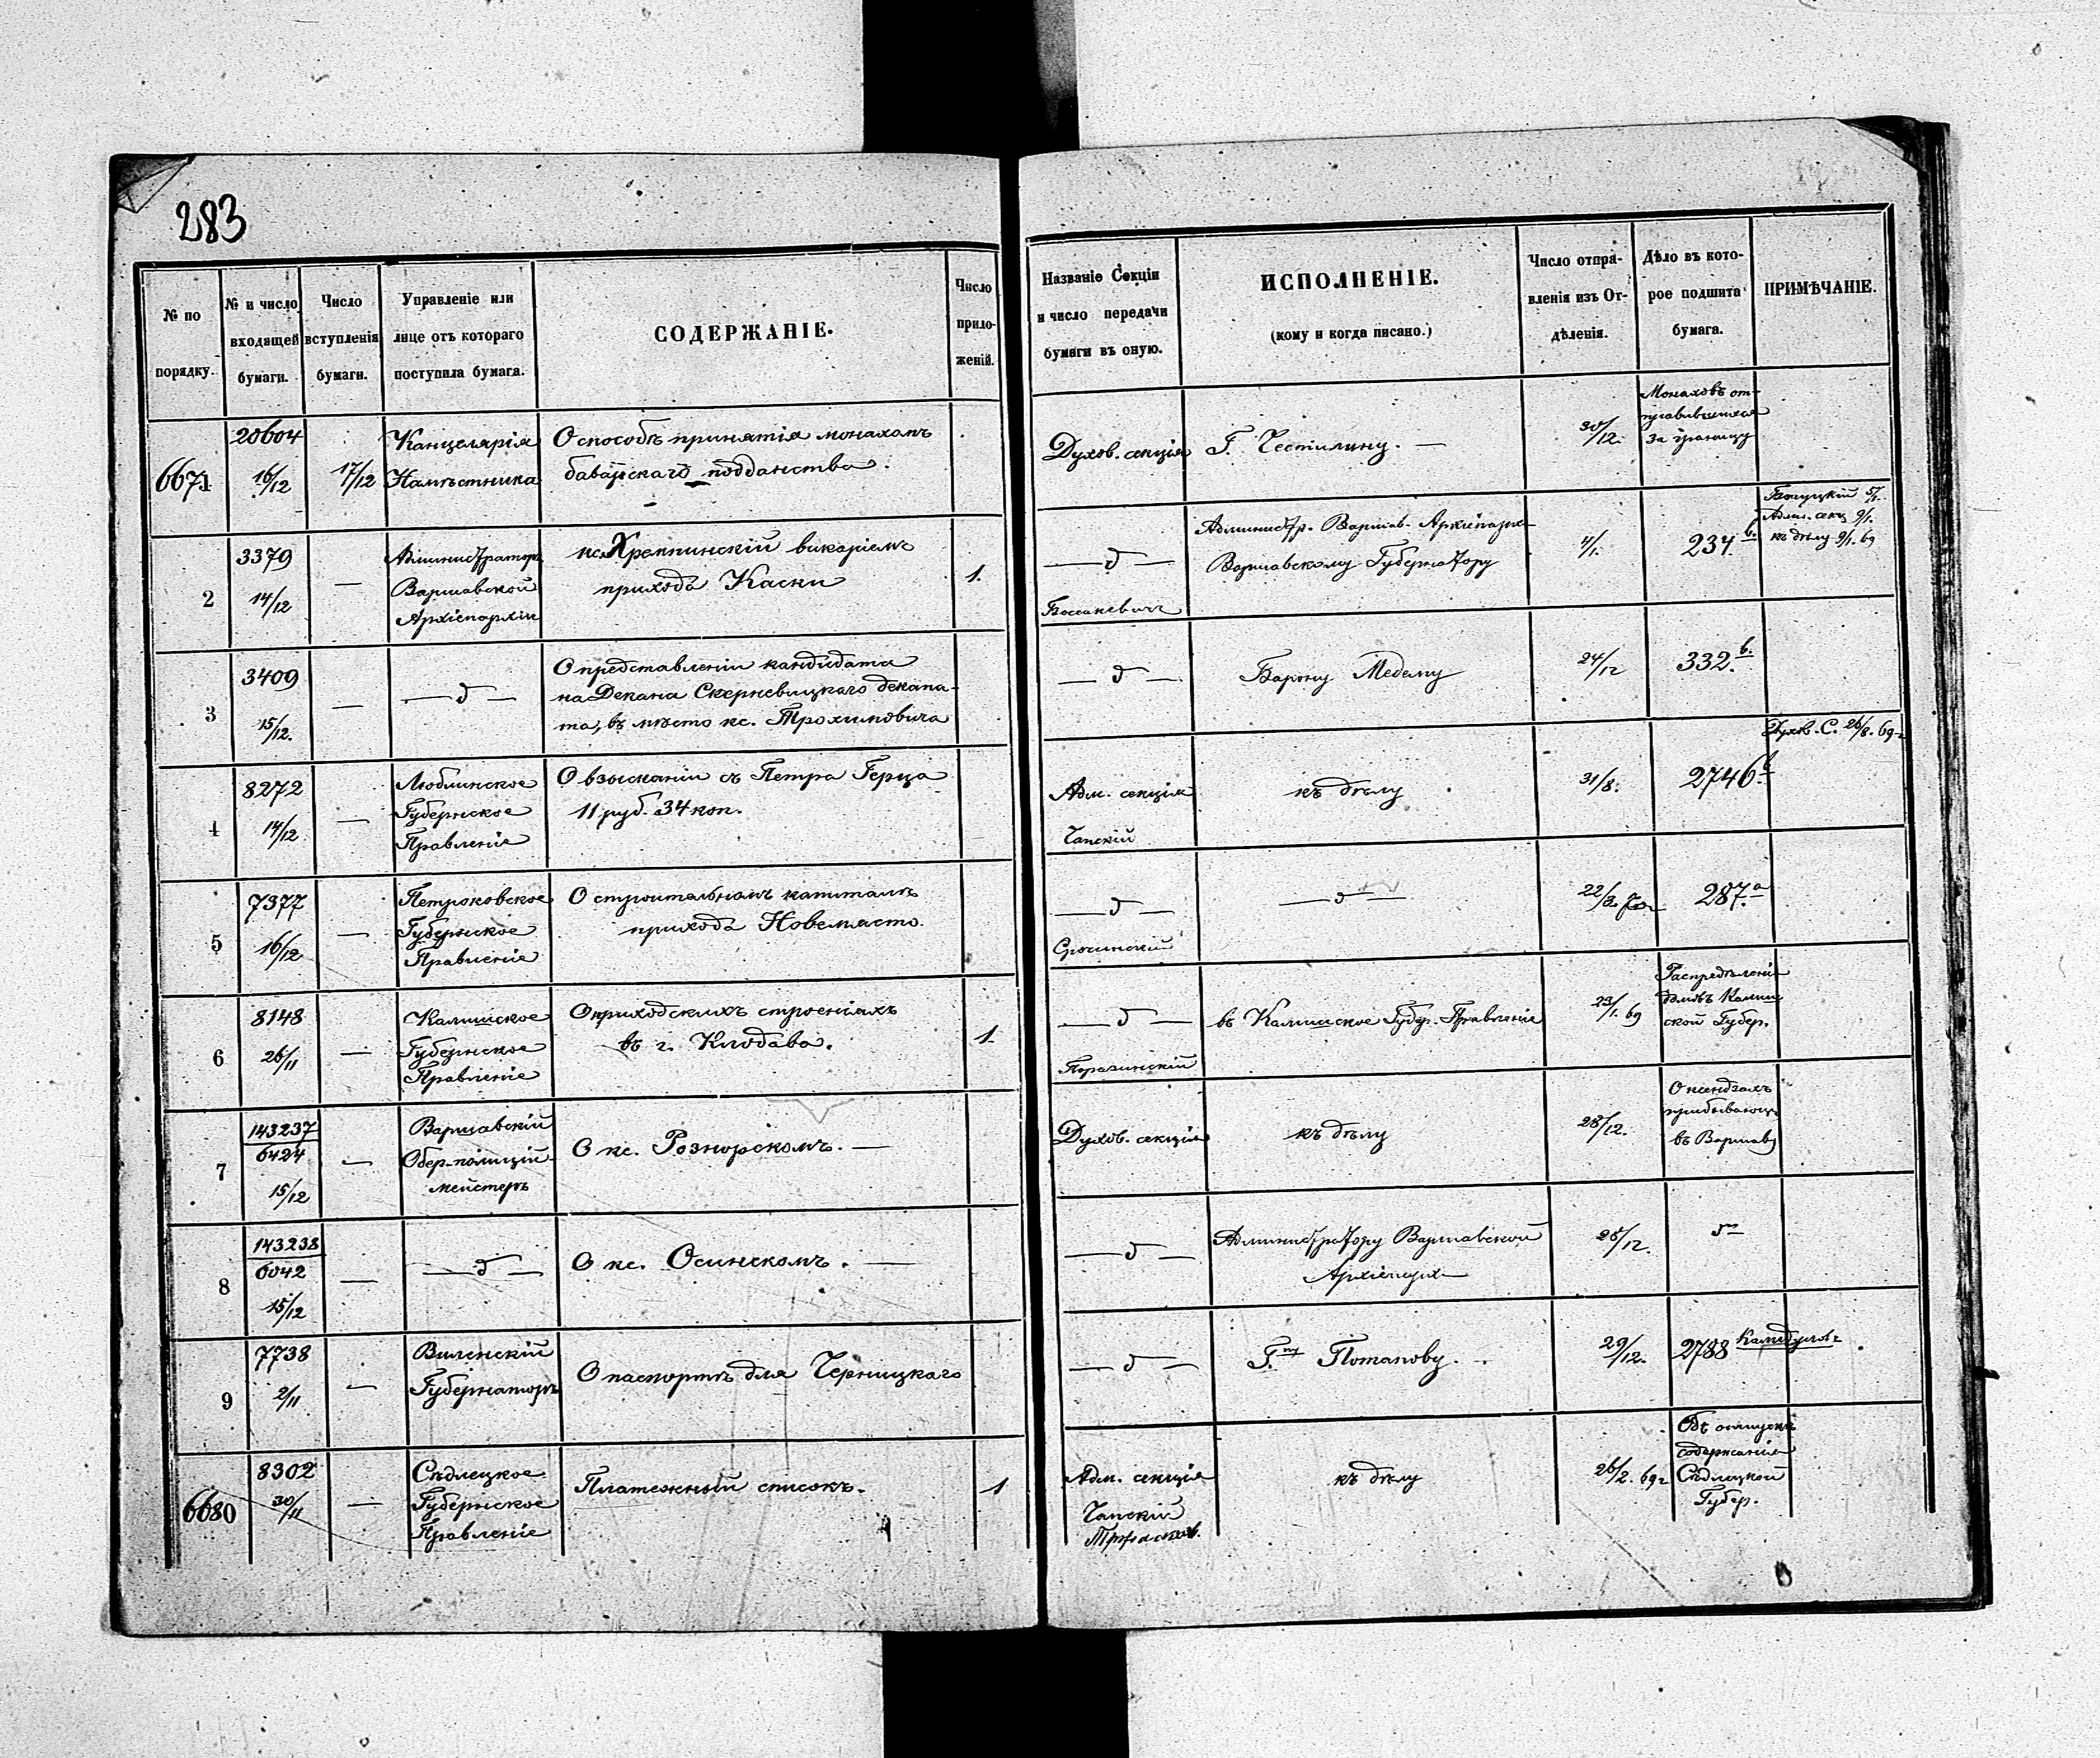 283
№ по порядку.
№ и число входящей бумаги.
Число вступленія бумаги.
Управленіе или лице отъ котораго поступила бумага.
СОДЕРЖАНІЕ.
Число приложеній.
Названіе Секціи и число передачи бумаги въ оную.
ИСПОЛНЕНІЕ.
(кому и когда писано.)
Число отправленія изъ Отдѣленія.
Дѣло въ которое подшита бумага.
ПРИМѢЧАНІЕ.
6671
20604
16/12
17/12
Канцелярія
Намѣстника
О способѣ принятія монахомъ
баварскаго подданства.
Духов. секція
Г.
30/12.
Монаховъ от-
за границу
2
3379
14/12
—
Администраторъ
Варшавской
Архіепархіи
кс. Хремпинскій викаріемъ
прихода Каски
1.
— д —
Администр. Варшав. Архіепарх.
Варшавскому Губернатору
4/1.
234.
Адм. секц. 9/1.
къ дѣлу 9/1. 69
3
3409
15/12.
—
— д —
О представленіи кандидата
на Декана Скерневицкаго декана-
та, въ мѣсто кс. Трохимовича
— д —
Барону Медему
24/12
332.
4
8272
14/12
—
Люблинское
Губернское
Правленіе
О взысканіи съ Петра Герца
11 руб. 34 коп.
Адм. секція
Чапскій
къ дѣлу
31/8.
2746.
Духов. С. 26/8. 69 г.
5
7377
16/12
—
Петроковское
Губернское
Правленіе
О строительномъ капиталѣ
прихода Новемясто.
— д —
— д —
287.а
6
8148
26/11
—
Калишское
Губернское
Правленіе
О приходскихъ строеніяхъ
въ г. Клодава.
1.
— д —
въ Калишское Губер. Правленіе
23/1. 69
Калиш
ской Губер.
7
143237
6424
15/12
—
Варшавскій
Обер-полицій-
мейстеръ
О кс. Рознорскомъ. —
Духов. секція
къ дѣлу
28/12.
О ксендзахъ
прибывающ.
въ Варшаву
8
143238
6042
15/12
—
— д —
О кс. Осинскомъ. —
— д —
Администратору Варшавской
Архіепарх.
28/12.
д —
9
7738
2/11
—
Виленскій
Губернаторъ
О паспортѣ для Черницкаго
— д —
Г.ну Потапову.
29/12.
2788
6680
8302
30/11
—
Сѣдлецкое
Губернское
Правленіе
Платежный списокъ.
1
Адм. секція
Чапскій
къ дѣлу
26/2. 69 г.
Объ отпускѣ
содержанія
Сѣдлецкой
Губер.